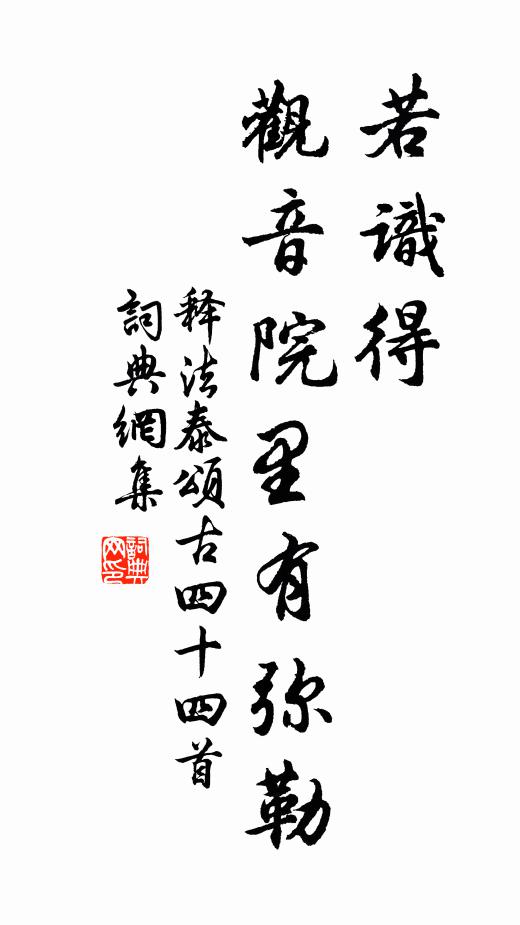 若識得
觀音院里有弥勒
释法泰頌古四十四首
詞典網集
詞典网印